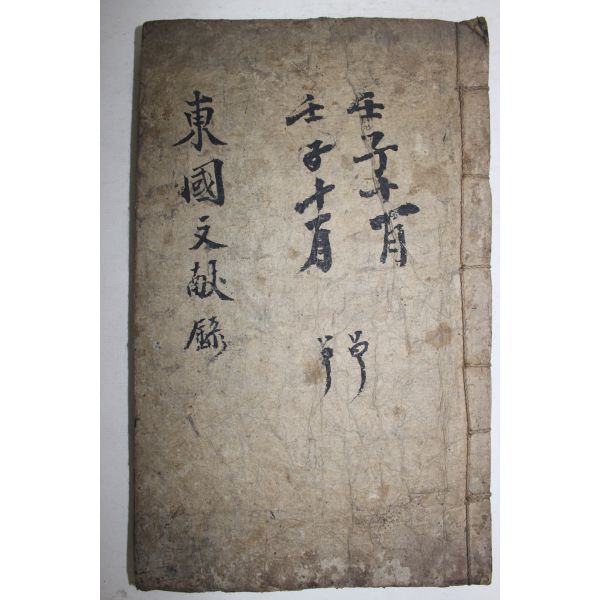 壬子十一月
壬子十一月
東國文献錄